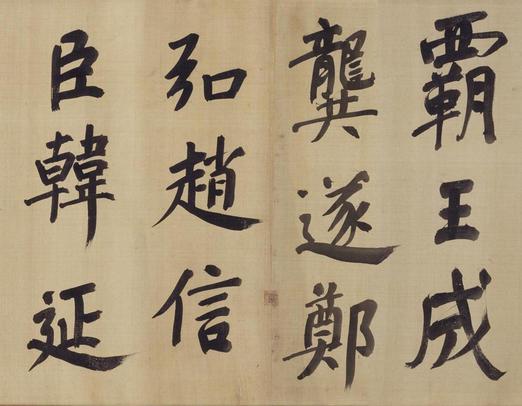 霸王成
龔遂鄭
弘趙信
臣韓延